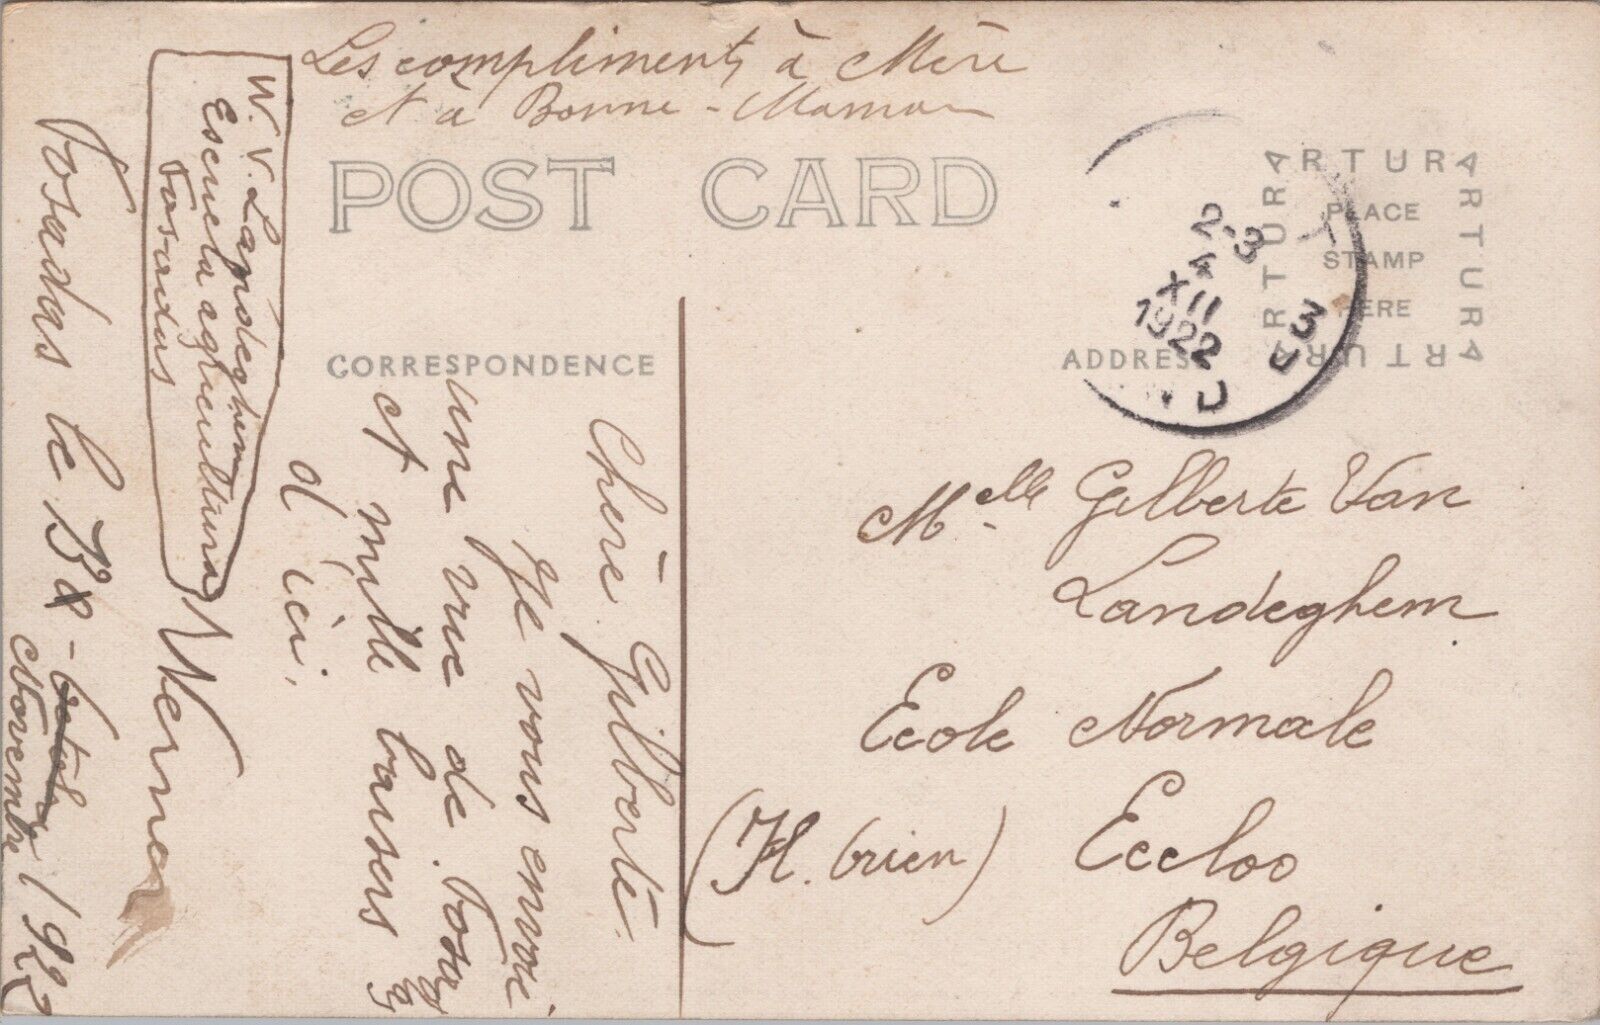 Les compliments à Mère
et à Bonne-Maman
POST CARD
CORRESPONDENCE
ADDRESS
ARTURA
ARTURA
ARTURA
ARTURA
PLACE
STAMP
HERE
2-3
4
XII
1922
W. V. Landeghem
Escuela agricultura
Posadas
Posadas le
Novembre 1922
Chère Gilberte.
Je vous envoie
une vue de Posadas
et mille baisers
d'ici.
Werner
Melle Gilberte Van
Landeghem
Ecole Normale
Eecloo
Belgique